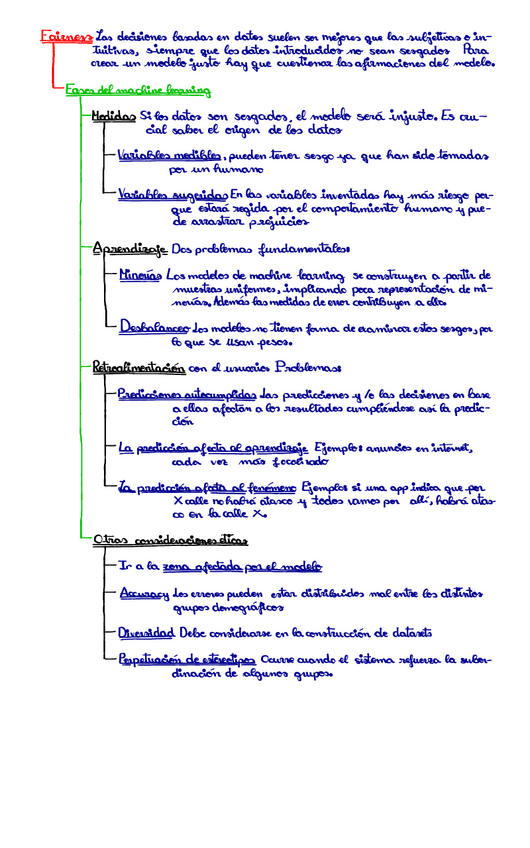 Fairness Las decisiones basadas en datos suelen ser mejores que las subjetivas o in-
tuitivas, siempre que los datos introducidos no sean sesgados Para
crear un modelo justo hay que cuestionar las afirmaciones del modelo.
Fases del machine learning
Medidas Si los datos son sesgados, el modelo será injusto. Es cru-
cial saber el origen de los datos
Variables medibles, pueden tener sesgo ya que han sido tomadas
por un humano
Variables sugeridas En las variables inventadas hay más riesgo por-
que estará regida por el comportamiento humano y pue-
de arrastrar prejuicios
Aprendizaje Dos problemas fundamentales:
Minorías Los modelos de machine learning se construyen a partir de
muestras uniformes, implicando poca representación de mi-
norías, Además las medidas de error contribuyen a ello.
Desbalanceo Los modelos no tienen forma de examinar estos sesgos, por
lo que se usan pesos.
Retroalimentación con el usuario Problemas:
Predicciones autocumplidas Las predicciones y/o las decisiones en base
a ellas afectan a los resultados cumpliéndose así la predic-
ción
La predicción afecta al aprendizaje Ejemplo: anuncios en internet,
cada vez más focalizado
La predicción afecta al fenómeno Ejemplo: si una app indica que por
X calle no habrá atasco y todos vamos por allí, habrá atas-
co en la calle X.
Otras consideraciones éticas
Ir a la zona afectada por el modelo
Accuracy Los errores pueden estar distribuidos mal entre los distintos
grupos demográficos
Diversidad Debe considerarse en la construcción de datasets
Perpetuación de estereotipos Ocurre cuando el sistema refuerza la subor-
dinación de algunos grupos.